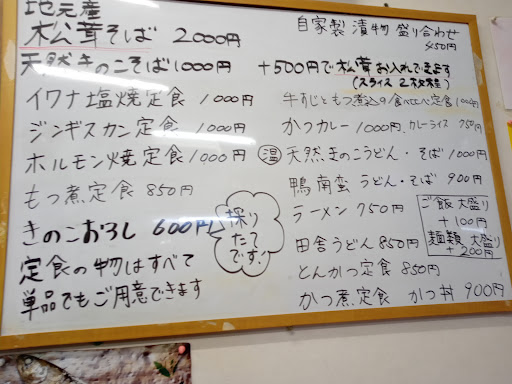 地元産
松茸そば 2000円
天然きのこそば 1000円
+500円で松茸お入れできます
(スライス2枚程)
イワナ塩焼定食 1000円
ジンギスカン定食 1000円
ホルモン焼定食 1000円
もつ煮定食 850円
きのこおろし 600円
採りたてです!
定食の物はすべて
単品でもご用意できます
自家製 漬物 盛り合わせ
450円
牛すじともつ煮込の食べくらべ定食 1000円
かつカレー 1000円、カレーライス 750円
温 天然きのこうどん・そば 1000円
鴨南蛮 うどん・そば 900円
ラーメン 750円
田舎うどん 850円
とんかつ定食 850円
かつ煮定食 かつ丼 900円
ご飯 大盛り
+100円
麺類 大盛り
+200円